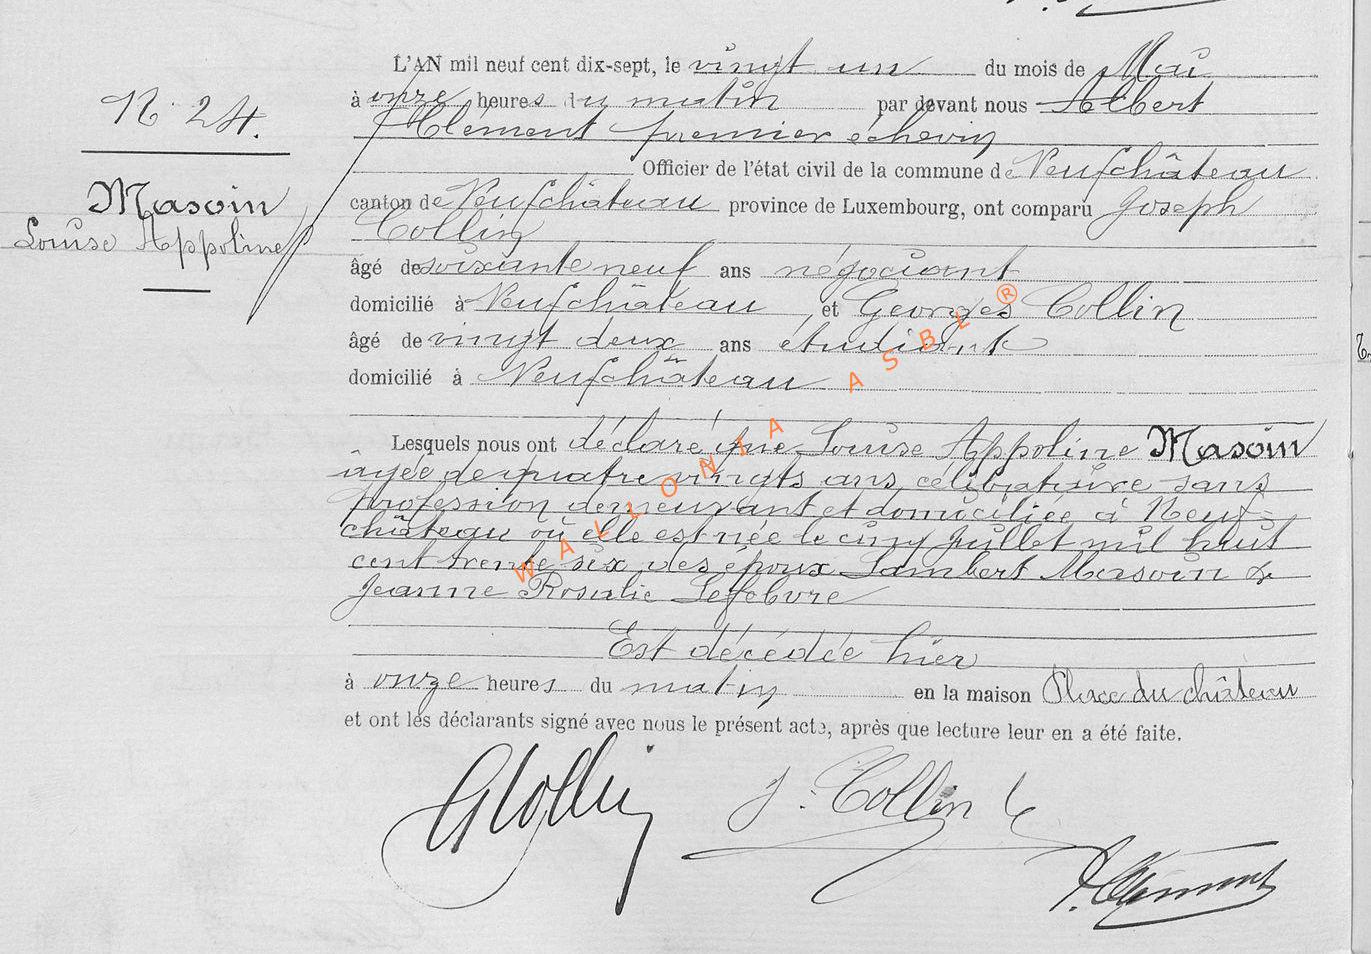 N. 24.
Masoin
Louise Appoline
L'AN mil neuf cent dix-sept, le vingt un du mois de Mai
à onze heures du matin par devant nous Albert
Clément premier échevin
Officier de l'état civil de la commune de Neufchâteau
canton de Neufchâteau province de Luxembourg, ont comparu Joseph
Collin
âgé de soixante neuf ans négociant
domicilié à Neufchâteau et Georges Collin
âgé de vingt deux ans étudiant
domicilié à Neufchâteau
Lesquels nous ont déclaré que Louise Appoline Masoin
âgée de quatre vingts ans, célibataire sans
profession demeurant et domiciliée à Neuf=
château où elle est née le cinq Juillet mil huit
cent trente six, des époux Lambert Masoin &
Jeanne Rosalie Lefebvre
Est décédée hier
à onze heures du matin en la maison Place du château
et ont les déclarants signé avec nous le présent acte, après que lecture leur en a été faite.
GCollin
J. Collin
A. Clément
WALLONIA ASBL ®